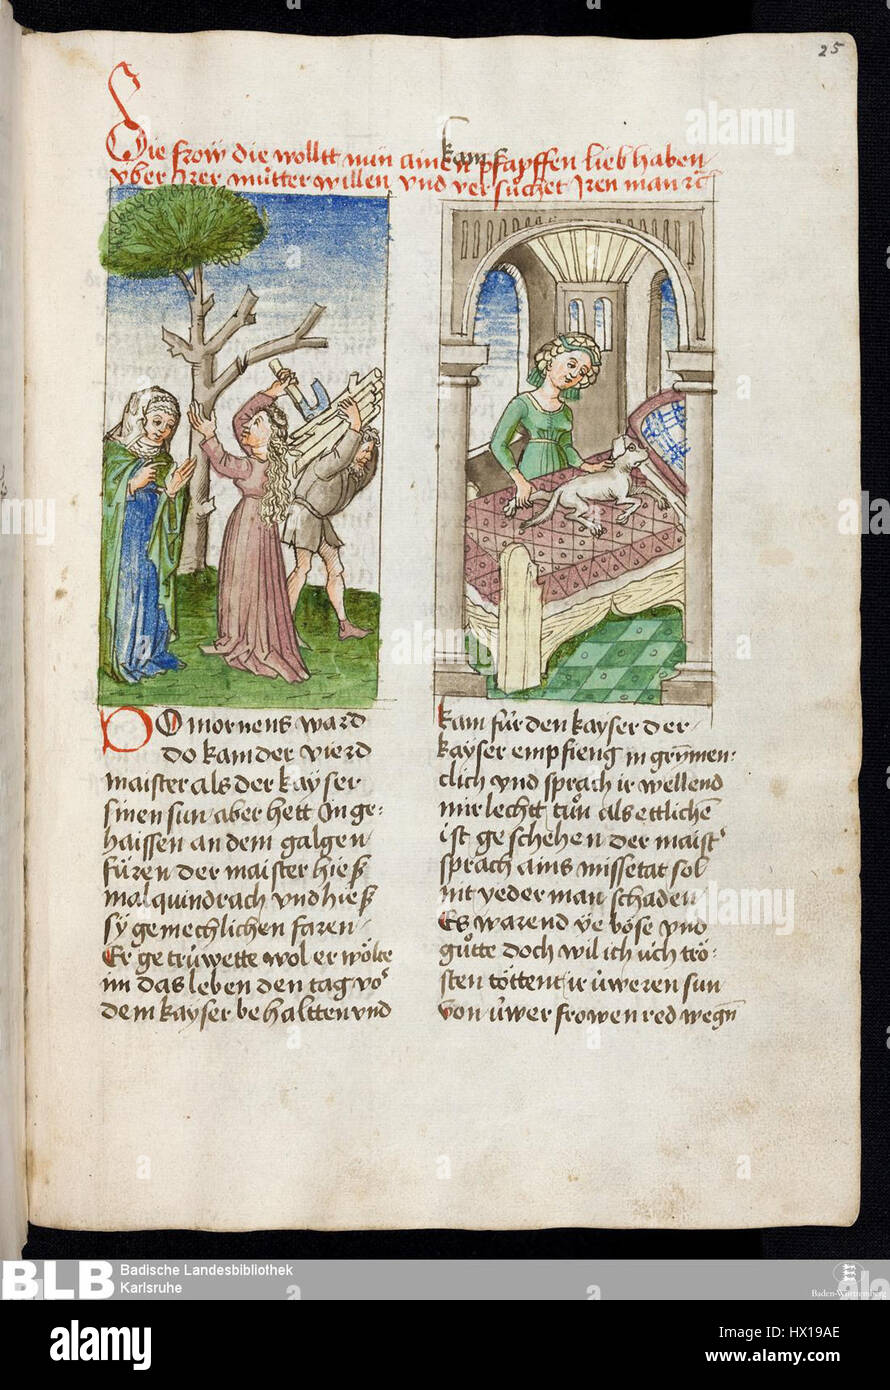 25
Die frow die wolltt nun ainen pfapffen lieb haben
vber Irer mùtter willen vnd versùchet Iren man rc
kam
DO mornens ward
do kam der vierd
maister als der kayser
sinen sun aber hett In ge-
haissen an dem galgen
fùren der maister hieß
malquindrach vnd hieß
sy gemechlichen faren
Er getrùwette wol er wölte
im das leben den tag vor
dem kayser behaltten vnd
kam fùr den kayser der
kayser empfieng in grymen-
clich vnd sprach ir wellend
mir lechtt tůn als ettliche
ist geschehen der maister
sprach ains missetat sol
nit yederman schaden
Es warend ye böse vnd
gůtte doch wil ich ùch trö-
sten töttent ir ùweren sun
von ùwer frowen red wegn
BLB
Badische Landesbibliothek
Karlsruhe
Baden-Württemberg
alamy
a
alamy
Image ID: HX19AE
www.alamy.com